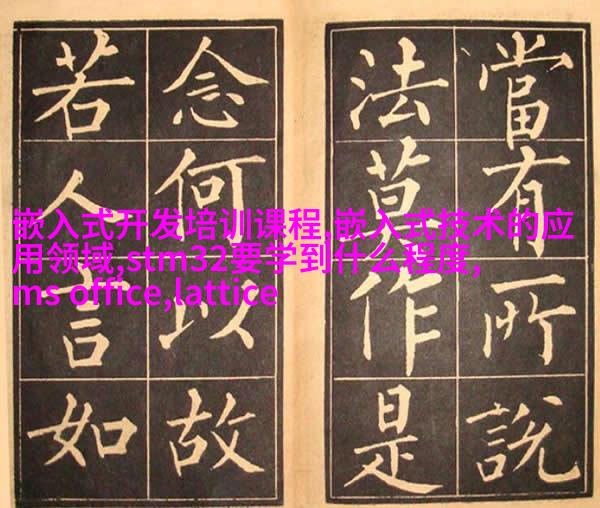 當有所說
法莫作是
念何以故
若人言如
嵌入式开发培训课程,嵌入式技术的应
用领域,stm32要学到什么程度,
ms office,lattice